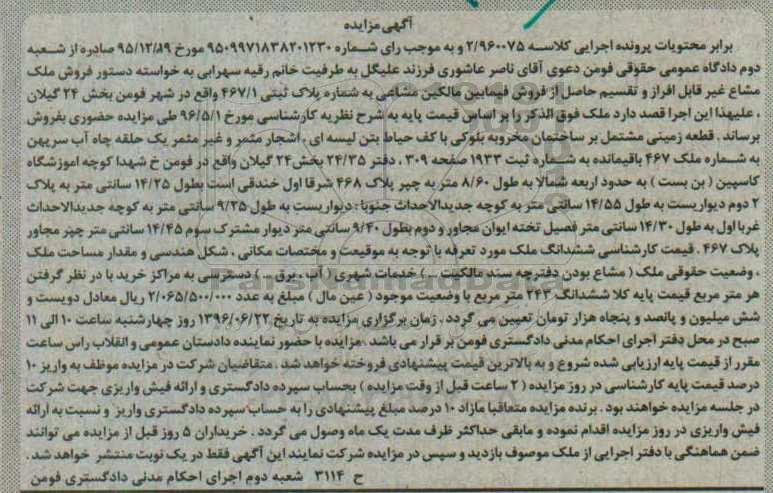 آگهی مزایده
برابر محتویات پرونده اجرایی کلاسه ۲/۹۶۰۰۷۵ و به موجب رای شماره ۹۵۰۹۹۷۱۸۳۸۲۰۱۲۳۰ مورخ ۹۵/۱۲/۱۹ صادره از شعبه
دوم دادگاه عمومی حقوقی فومن دعوی آقای ناصر عاشوری فرزند علیگل به طرفیت خانم رقیه سهرابی به خواسته دستور فروش ملک
مشاع غیر قابل افراز و تقسیم حاصل از فروش فیمابین مالکین مشاعی به شماره پلاک ثبتی ۴۶۷/۱ واقع در شهر فومن بخش ۲۴ گیلان
، علیهذا این اجرا قصد دارد ملک فوق الذکر را بر اساس قیمت پایه به شرح نظریه کارشناسی مورخ ۹۶/۵/۱ طی مزایده حضوری بفروش
برساند . قطعه زمینی مشتمل بر ساختمان مخروبه بلوکی با کف حیاط بتن لیسه ای ، اشجار مثمر و غیر مثمر یک حلقه چاه آب سرپهن
به شماره ملک ۴۶۷ باقیمانده به شماره ثبت ۱۹۳۳ صفحه ۳۰۹ ، دفتر ۲۴/۳۵ بخش ۲۴ گیلان واقع در فومن خ شهدا کوچه اموزشگاه
کاسپین ( بن بست ) به حدود اربعه شمالا به طول ۸/۶۰ متر به چپر پلاک ۴۶۸ شرقا اول خندقی است بطول ۱۴/۲۵ سانتی متر به پلاک
۲ دوم دیواریست به طول ۱۴/۵۵ سانتی متر به کوچه جدیدالاحداث جنوبا : دیواریست به طول ۹/۲۵ سانتی متر به کوچه جدیدالاحداث
غربا اول به طول ۱۴/۳۰ سانتی متر فصیل تخته ایوان مجاور و دوم بطول ۹/۴۰ سانتی متر دیوار مشترک سوم ۱۴/۴۵ سانتی متر چپر مجاور
پلاک ۴۶۷ . قیمت کارشناسی ششدانگ ملک مورد تعرفه با توجه به موقیعت و مختصات مکانی ، شکل هندسی و مقدار مساحت ملک
، وضعیت حقوقی ملک ( مشاع بودن دفترچه سند مالکیت ... ) خدمات شهری ( آب ، برق ... ) دسترسی به مراکز خرید با در نظر گرفتن
هر متر مربع قیمت پایه کلا ششدانگ ۲۴۳ متر مربع با وضعیت موجود ( عین مال ) مبلغ به عدد ۲/۰۶۵/۵۰۰/۰۰۰ ریال معادل دویست و
شش میلیون و پانصد و پنجاه هزار تومان تعیین می گردد . زمان برگزاری مزایده به تاریخ ۱۳۹۶/۰۶/۲۲ روز چهارشنبه ساعت ۱۰ الی ۱۱
صبح در محل دفتر اجرای احکام مدنی دادگستری فومن بر قرار می باشد . مزایده با حضور نماینده دادستان عمومی و انقلاب راس ساعت
مقرر از قیمت پایه ارزیابی شده شروع و به بالاترین قیمت پیشنهادی فروخته خواهد شد . متقاضیان شرکت در مزایده موظف به واریز ۱۰
درصد قیمت پایه کارشناسی در روز مزایده ( ۲ ساعت قبل از وقت مزایده ) بحساب سپرده دادگستری و ارائه فیش واریزی جهت شرکت
در جلسه مزایده خواهند بود . برنده مزایده متعاقبا مازاد ۱۰ درصد مبلغ پیشنهادی را به حساب سپرده دادگستری واریز و نسبت به ارائه
فیش واریزی در روز مزایده اقدام نموده و مابقی حداکثر ظرف مدت یک ماه وصول می گردد . خریداران ۵ روز قبل از مزایده می توانند
ضمن هماهنگی با دفتر اجرایی از ملک موصوف بازدید و سپس در مزایده شرکت نمایند این آگهی فقط در یک نوبت منتشر خواهد شد .
ح ۳۱۱۴ شعبه دوم اجرای احکام مدنی دادگستری فومن